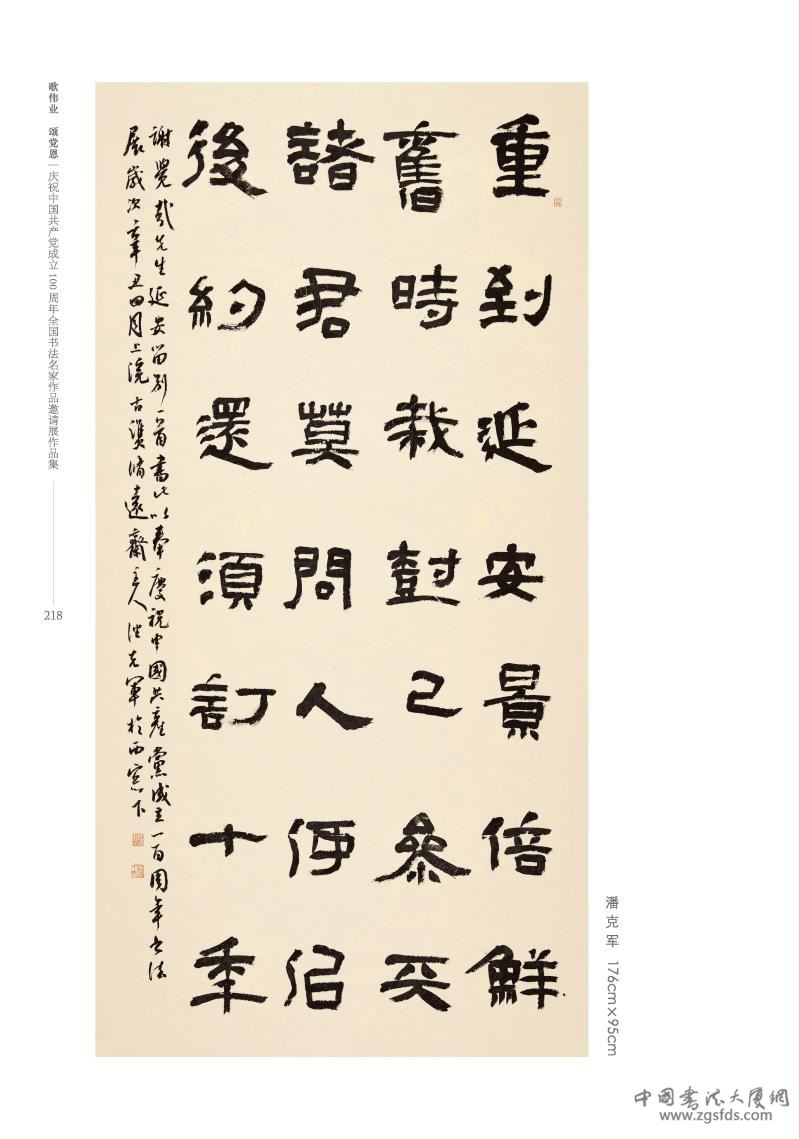 重到延安景倍鮮
舊時栽尌已參天
諸君莫問人何佀
後約還須訂十年
謝覺哉先生延安留別一首書此以奉慶祝中國共產黨成立一百周年書法
展歲次辛丑四月上浣古潢脩遠齋主人潘克軍於西窓下
歌伟业 颂党恩｜庆祝中国共产党成立100周年全国书法名家作品邀请展作品集
218
潘克军 176cm×95cm
中国書法大厦網
www.zgsfds.com